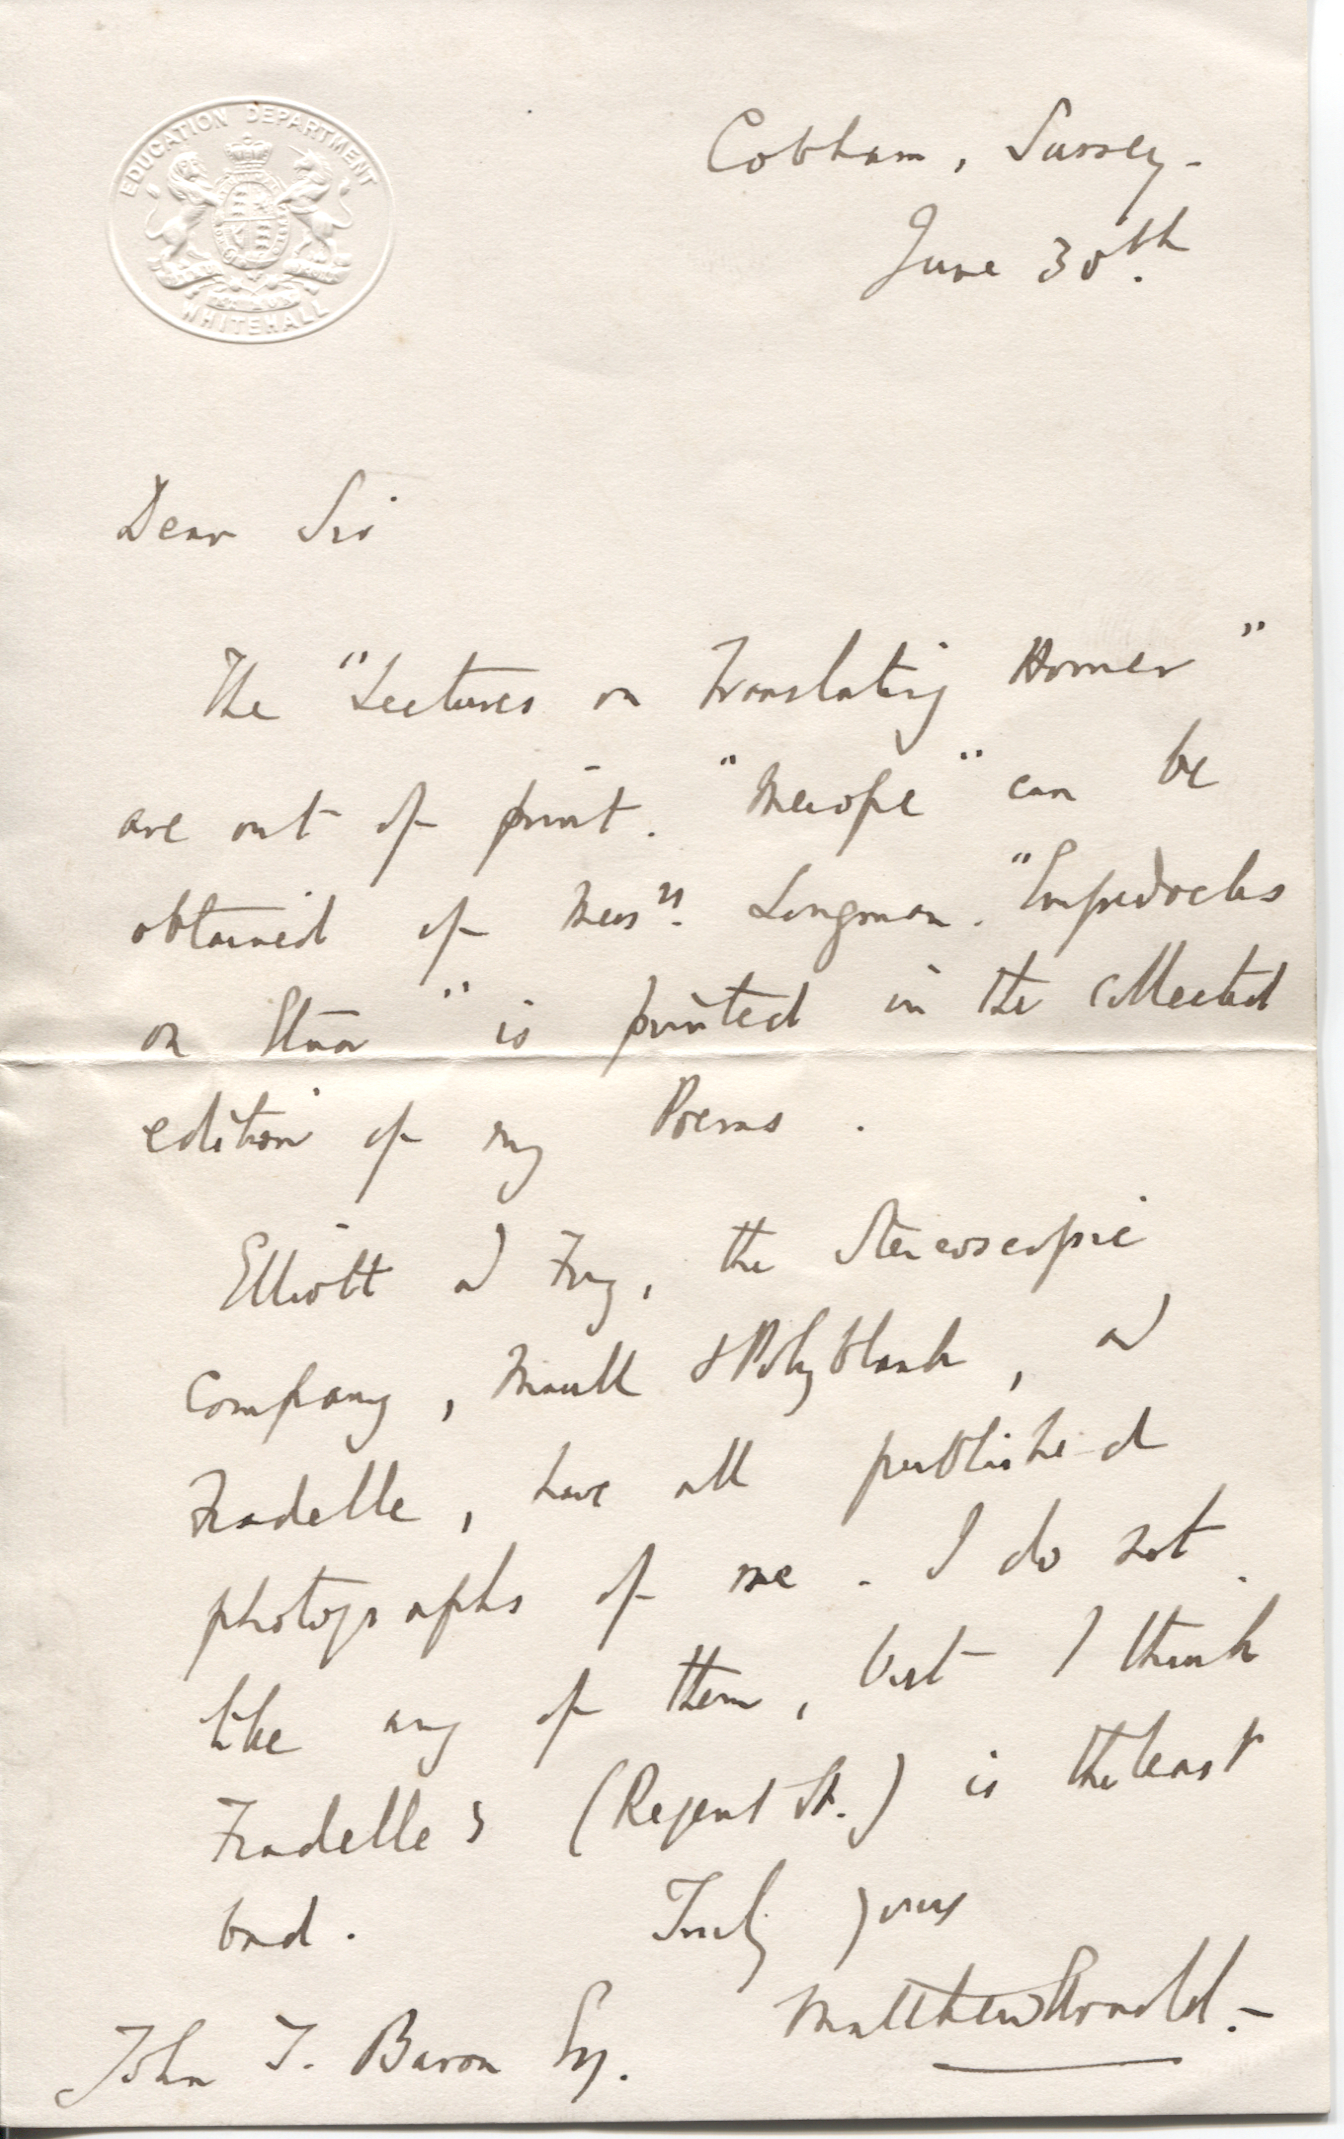 EDUCATION DEPARTMENT
WHITEHALL
Cobham, Surrey.
June 30th.
Dear Sir
The "Lectures on Translating Homer"
are out of print. "Merope" can be
obtained of Messrs. Longman. "Empedocles
on Etna" is printed in the collected
edition of my Poems.
Elliott and Fry, the Stereoscopic
Company, Maull & Polyblank, and
Fradelle, have all published
photographs of me. I do not
like any of them, but I think
Fradelle's (Regent St.) is the least
bad. Truly yours
Matthew Arnold.
John T. Baron Esq.